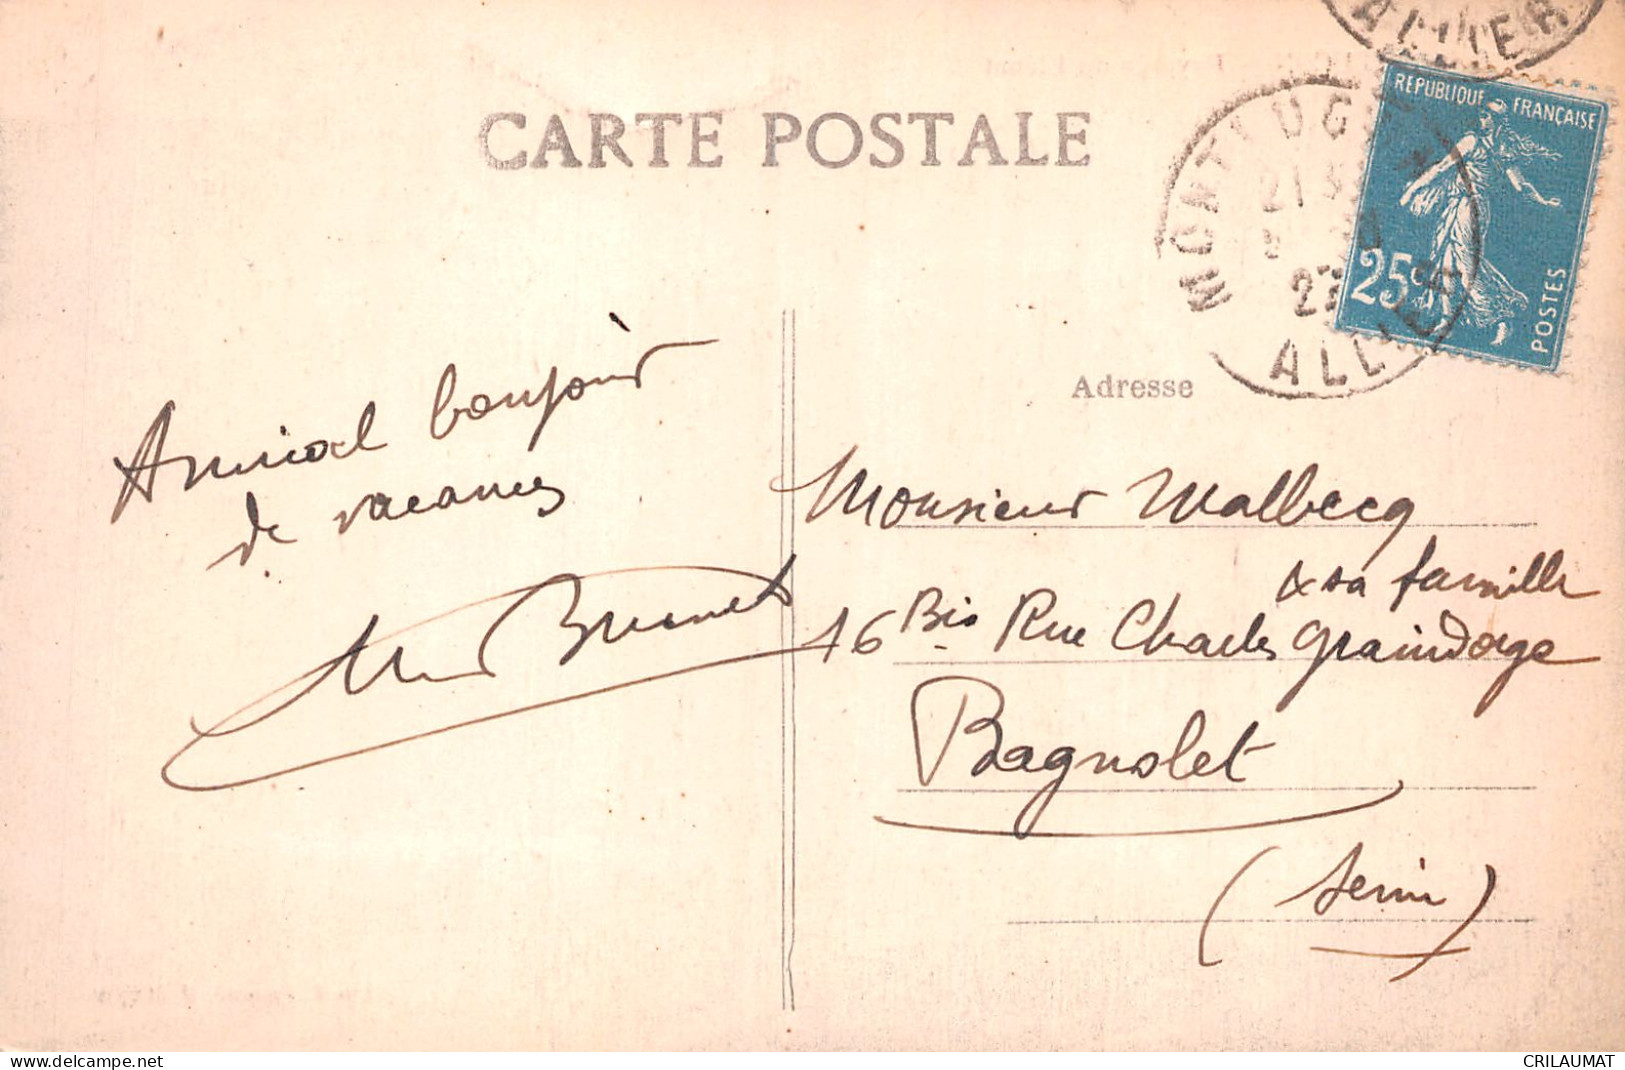 CARTE POSTALE
ALLIER
REPUBLIQUE FRANÇAISE
25c
POSTES
MONTLUÇON
21
27
ALLIER
Adresse
Amical bonjour
de vacances
Brunet
Monsieur Malbecq
& sa famille
16 Bis Rue Charles Graindorge
Bagnolet
(Seine)
delcampe.net
CRILAUMAT